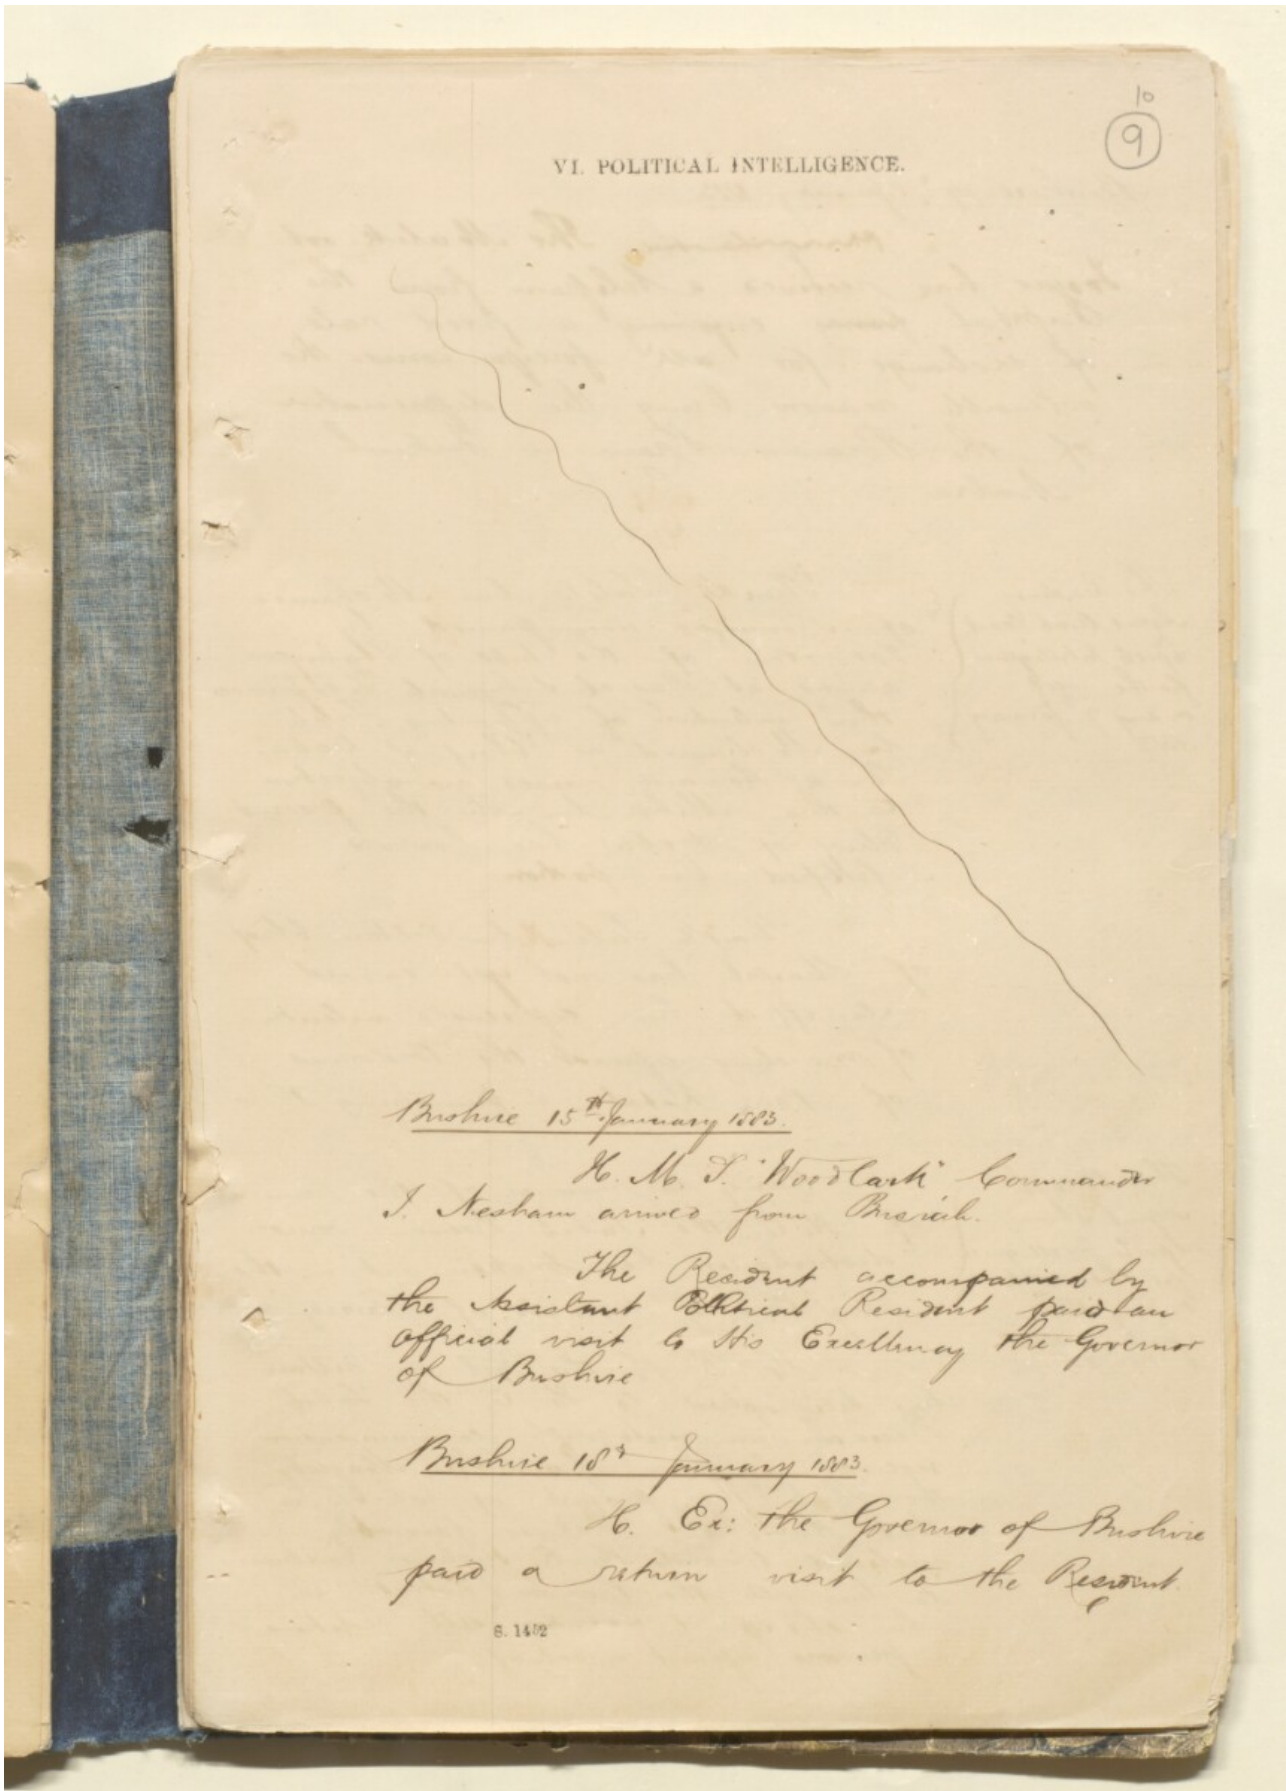 10
9
VI. POLITICAL INTELLIGENCE.
Bushire 15th January 1883.
H. M. S. "Woodlark" Commander
I. Nesham arrived from Busrah.
The Resident accompanied by
the Assistant Political Resident paid an
official visit to His Excellency the Governor
of Bushire
Bushire 18th January 1883.
H. Ex: the Governor of Bushire
paid a return visit to the Resident
S. 1452